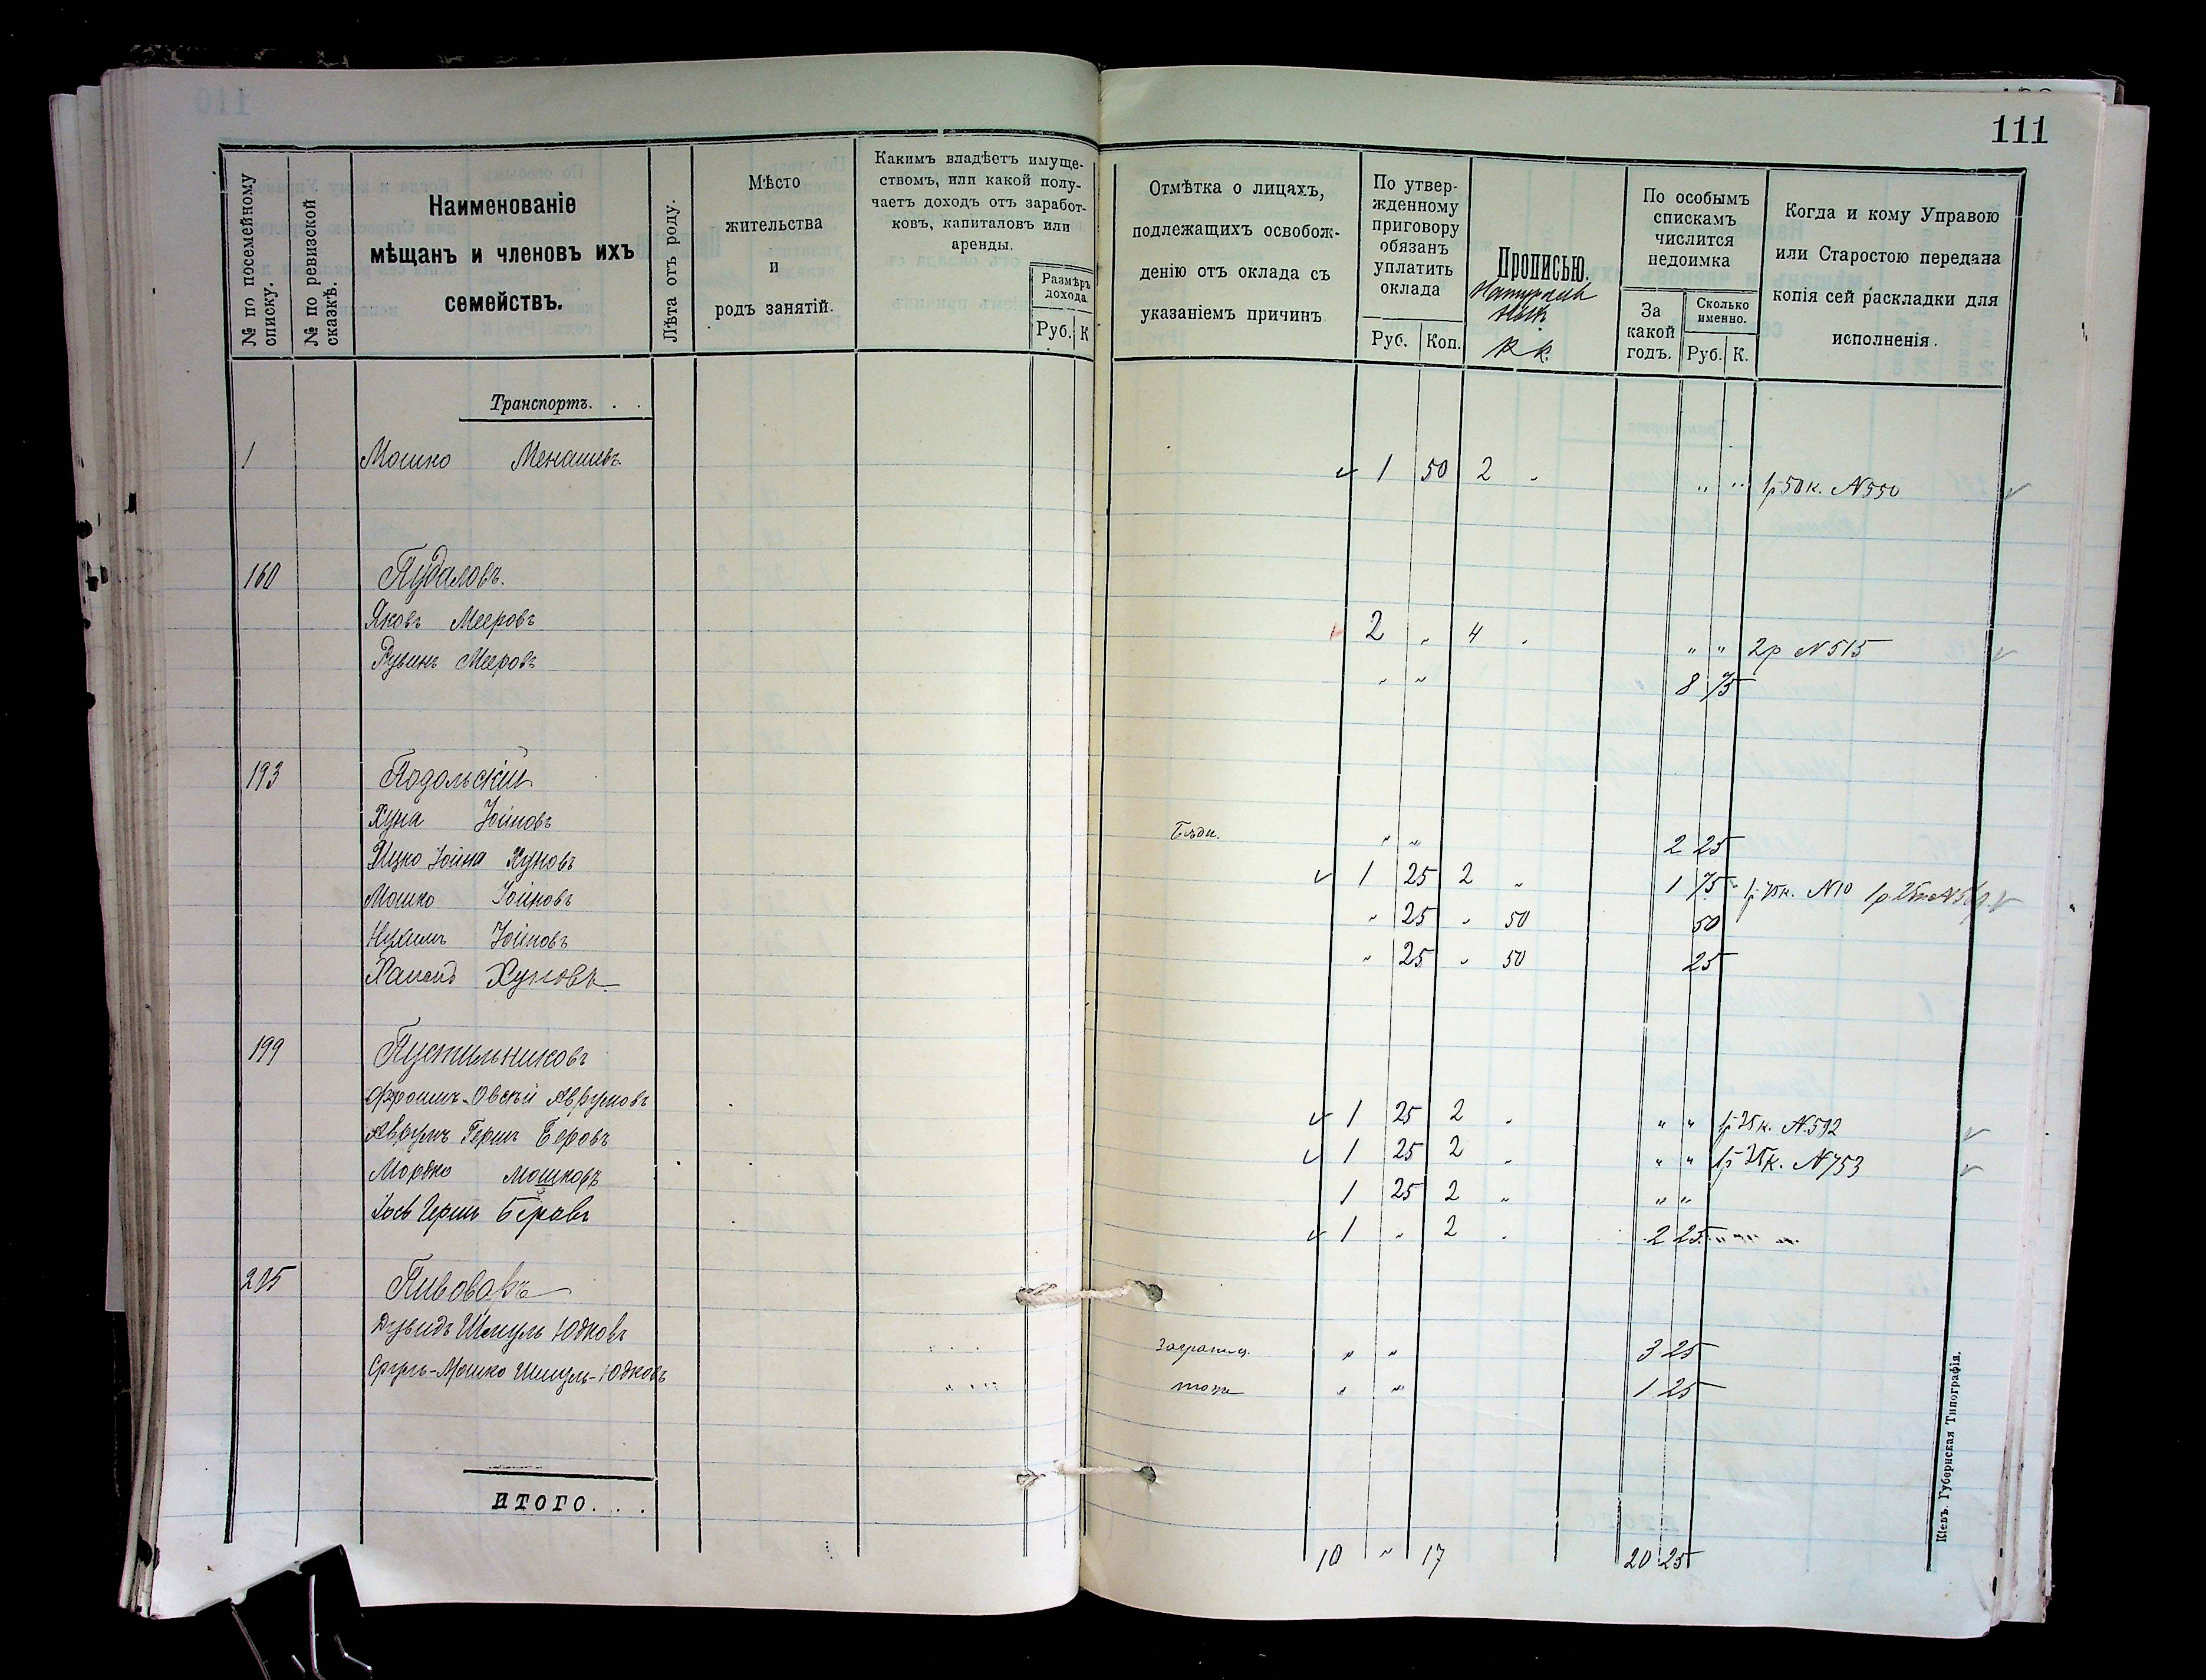 111
№ по посемейному списку.
№ по ревизской сказкѣ.
Наименованіе
мѣщанъ и членовъ ихъ
семействъ.
Лѣта отъ роду.
Мѣсто
жительства
и
родъ занятій.
Какимъ владѣетъ имуще-
ствомъ, или какой полу-
чаетъ доходъ отъ заработ-
ковъ, капиталовъ или
аренды.
Размѣръ
дохода.
Руб. К
Отмѣтка о лицахъ,
подлежащихъ освобож-
денію отъ оклада съ
указаніемъ причинъ
По утвер-
жденному
приговору
обязанъ
уплатить
оклада
Руб. Коп.
Прописью.
Р к.
По особымъ
спискамъ
числится
недоимка
За
какой
годъ.
Сколько
именно.
Руб. К.
Когда и кому Управою
или Старостою передана
копія сей раскладки для
исполненія.
Транспортъ. . .
1 Мошко Менашевъ 1 50 2 " " " 1р 50к. N 550
160 Пудаловъ.
Яковъ Мееровъ 2 " 4 " " " 2р N 515
Рувинъ Мееровъ " " 8 75
193 Подольскій
Хуна Іойновъ Бѣдн. " " 2 25
Ицко Іойна Хуновъ 1 25 2 " 1 75 1р 75к. N10 1р 25к
Мошко Іойновъ " 25 " 50 50
Нухимъ Іойновъ " 25 " 50 25
Хуновъ
199 Пустильниковъ
Фроимъ-Овсѣй Аврумовъ 1 25 2 " " " 1р 25к. N.592
Аврумъ Герш Беровъ 1 25 2 " " " 1р 25к. N753
Мордко Мошковъ 1 25 2 " " "
Іось Герш Беровъ 1 " 2 " 2 25
205 Пивоваръ
Дувидъ Шмуль Юдковъ заграниц. " " 3 25
Сруль-Мошко Шмуль-Юдковъ тоже " " 1 25
ИТОГО. . .
10 " 17 20 25
Кіевъ. Губернская Типографія.